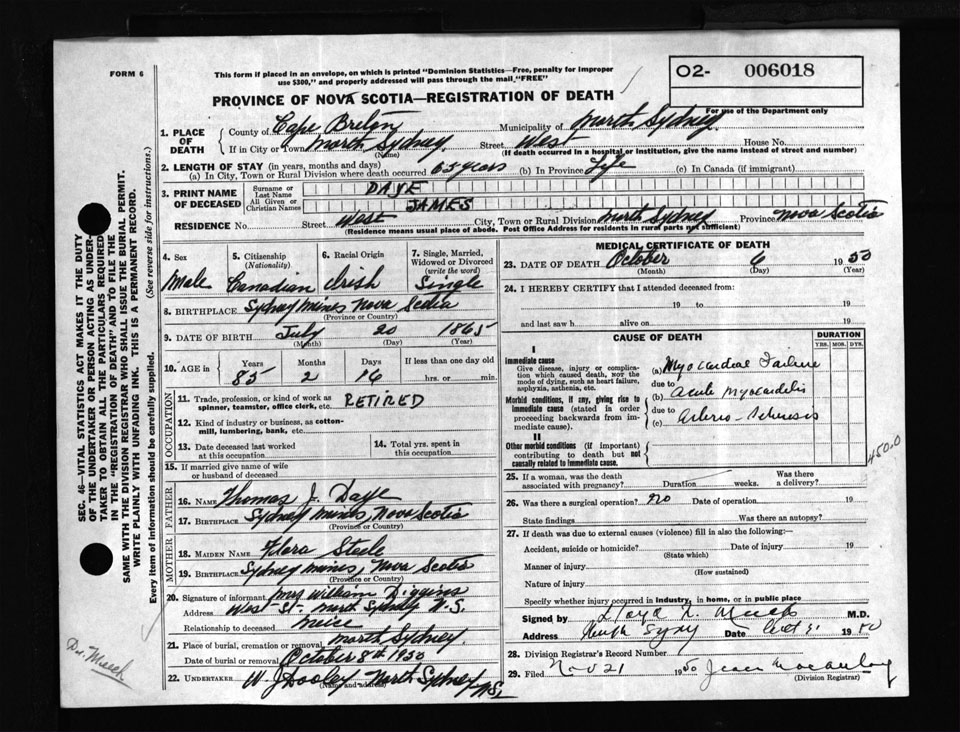 FORM 6
This form if placed in an envelope, on which is printed "Dominion Statistics—Free, penalty for improper
use $300," and properly addressed will pass through the mail "FREE"
O2- 006018
PROVINCE OF NOVA SCOTIA—REGISTRATION OF DEATH
For use of the Department only
1. PLACE OF DEATH
County of Cape Breton Municipality of North Sydney
If in City or Town North Sydney. Street West House No.
(Name) (If death occurred in a hospital or institution, give the name instead of street and number)
2. LENGTH OF STAY (in years, months and days)
(a) In City, Town or Rural Division where death occurred 65 years (b) In Province Life (c) In Canada (if immigrant)
3. PRINT NAME OF DECEASED
Surname or Last Name DAYE
All Given or Christian Names JAMES
RESIDENCE No. Street West City, Town or Rural Division North Sydney Province Nova Scotia
(Residence means usual place of abode. Post Office Address for residents in rural parts not sufficient)
4. Sex
Male
5. Citizenship
(Nationality)
Canadian
6. Racial Origin
Irish
7. Single, Married,
Widowed or Divorced
(write the word)
Single
8. BIRTHPLACE Sydney Mines Nova Scotia
(Province or Country)
9. DATE OF BIRTH July 20 1865
(Month) (Day) (Year)
10. AGE in
Years Months Days If less than one day old
85 2 16 hrs. or min.
OCCUPATION
11. Trade, profession, or kind of work as
spinner, teamster, office clerk, etc. RETIRED
12. Kind of industry or business, as cotton-
mill, lumbering, bank, etc.
13. Date deceased last worked
at this occupation
14. Total yrs. spent in
this occupation
15. If married give name of wife
or husband of deceased
FATHER
16. NAME Thomas J. Daye
17. BIRTHPLACE Sydney Mines, Nova Scotia
(Province or Country)
MOTHER
18. MAIDEN NAME Flora Steele
19. BIRTHPLACE Sydney Mines, Nova Scotia
(Province or Country)
20. Signature of informant Mrs William Diggins
Address West St. North Sydney N.S.
Relationship to deceased neice
21. Place of burial, cremation or removal North Sydney.
Date of burial or removal October 8th 1950
22. UNDERTAKER W J Dooley North Sydney N.S.
(Name and address)
MEDICAL CERTIFICATE OF DEATH
23. DATE OF DEATH October 6 1950
(Month) (Day) (Year)
24. I HEREBY CERTIFY that I attended deceased from:
19 to 19
and last saw h alive on 19
CAUSE OF DEATH
DURATION
YRS. MOS. DYS.
I
Immediate cause
Give disease, injury or complica-
tion which caused death, NOT the
mode of dying, such as heart failure,
asphyxia, asthenia, etc.
(a) Myocardial Failure
due to
Morbid conditions, if any, giving rise to
immediate cause (stated in order
proceeding backwards from im-
mediate cause).
(b) Acute Myocarditis
due to
(c) Arterio-Sclerosis
II
Other morbid conditions (if important)
contributing to death but not
causally related to immediate cause.
450.0
25. If a woman, was the death
associated with pregnancy? Duration weeks. Was there
a delivery?
26. Was there a surgical operation? No Date of operation 19
State findings Was there an autopsy?
27. If death was due to external causes (violence) fill in also the following:—
Accident, suicide or homicide? Date of injury 19
(State which)
Manner of injury
(How sustained)
Nature of injury
Specify whether injury occurred in industry, in home, or in public place
Signed by M.D.
Address Date 1950
28. Division Registrar's Record Number
29. Filed Nov 21 1950
(Division Registrar)
SEC. 46—VITAL STATISTICS ACT MAKES IT THE DUTY
OF THE UNDERTAKER OR PERSON ACTING AS UNDER-
TAKER TO OBTAIN ALL THE PARTICULARS REQUIRED
IN THE "REGISTRATION OF DEATH" AND TO FILE THE
SAME WITH THE DIVISION REGISTRAR WHO SHALL ISSUE THE BURIAL PERMIT.
WRITE PLAINLY WITH UNFADING INK. THIS IS A PERMANENT RECORD.
Every item of information should be carefully supplied. (See reverse side for instructions.)